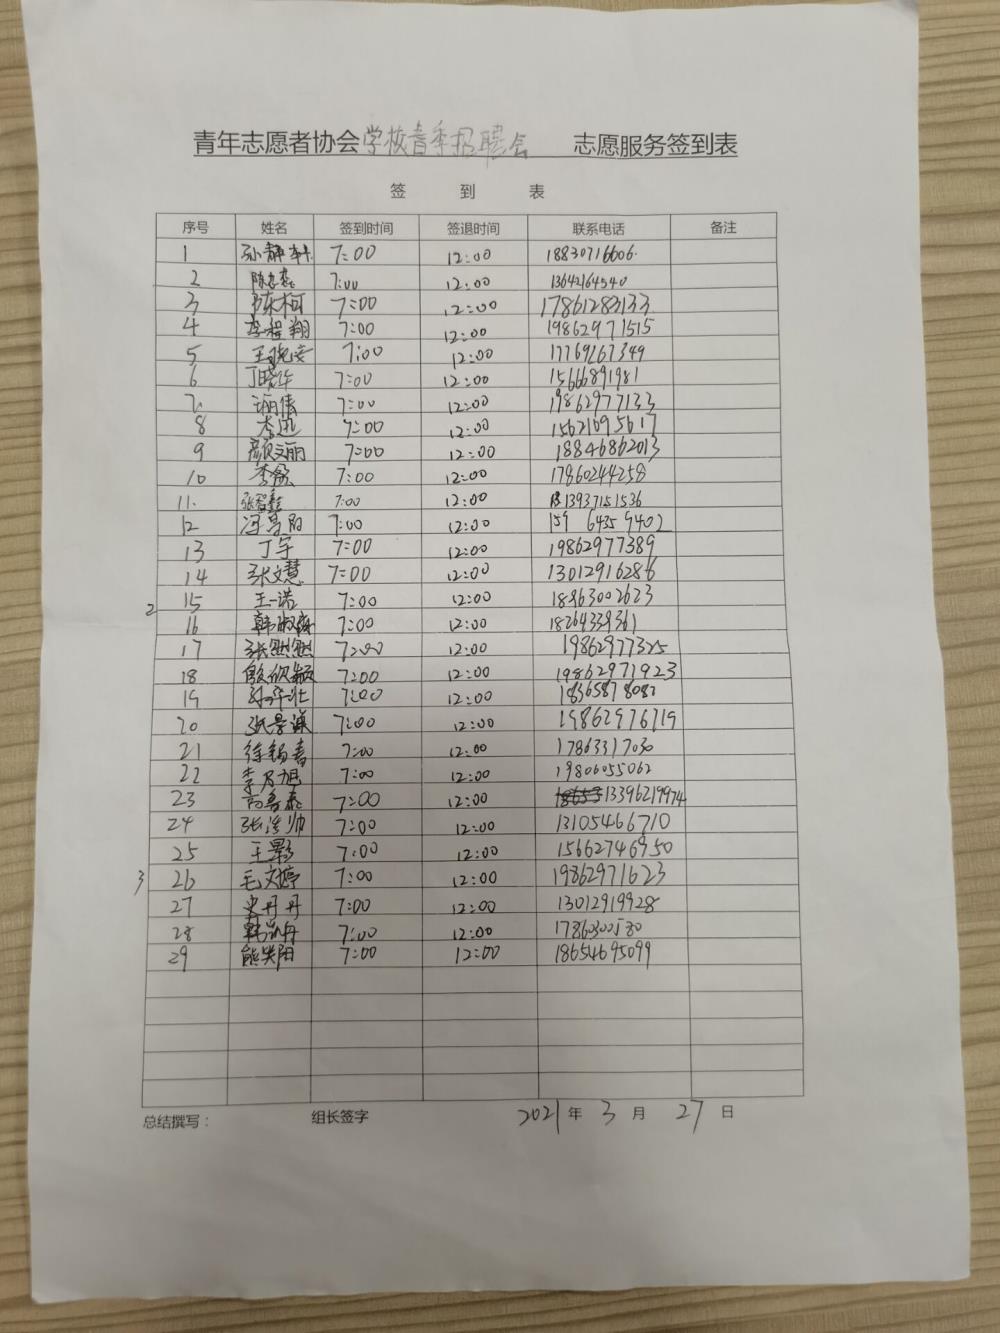 青年志愿者协会学校春季招聘会 志愿服务签到表
签 到 表
序号 姓名 签到时间 签退时间 联系电话 备注
1 孙静轩 7:00 12:00 18830716606
2 陈 7:00 12:00 13642164540
3 陈柯 7:00 12:00 17861283133
4 李程翔 7:00 12:00 19862971515
5 王晓安 7:00 12:00 17769267349
6 丁晓华 7:00 12:00 15666891981
7 丽倩 7:00 12:00 19862977133
8 李迅 7:00 12:00 15621695617
9 颜文丽 7:00 12:00 18846862013
10 李毅 7:00 12:00 17860244258
11. 张智鑫 7:00 12:00 13937151536
12 冯景阳 7:00 12:00 159 6435 9402
13 丁宇 7:00 12:00 19862977389
14 张文慧 7:00 12:00 13012916286
2 15 王一诺 7:00 12:00 18963002623
16 韩淑 7:00 12:00 18264339361
17 张然然 7:00 12:00 19862977325
18 殷欣毓 7:00 12:00 19862971923
19 孙华壮 7:00 12:00 18365878082
20 张景谦 7:00 12:00 19862976719
21 徐锡春 7:00 12:00 17863317030
22 李乃旭 7:00 12:00 19806055062
23 高鲁泰 7:00 12:00 13396219974
24 张泽帅 7:00 12:00 13105466710
25 王影 7:00 12:00 15662746950
3 26 毛文婷 7:00 12:00 19862971623
27 史丹丹 7:00 12:00 13012919928
28 韩凯丹 7:00 12:00 17860300580
29 熊笑阳 7:00 12:00 18654695099
总结撰写： 组长签字 2021 年 3 月 27 日